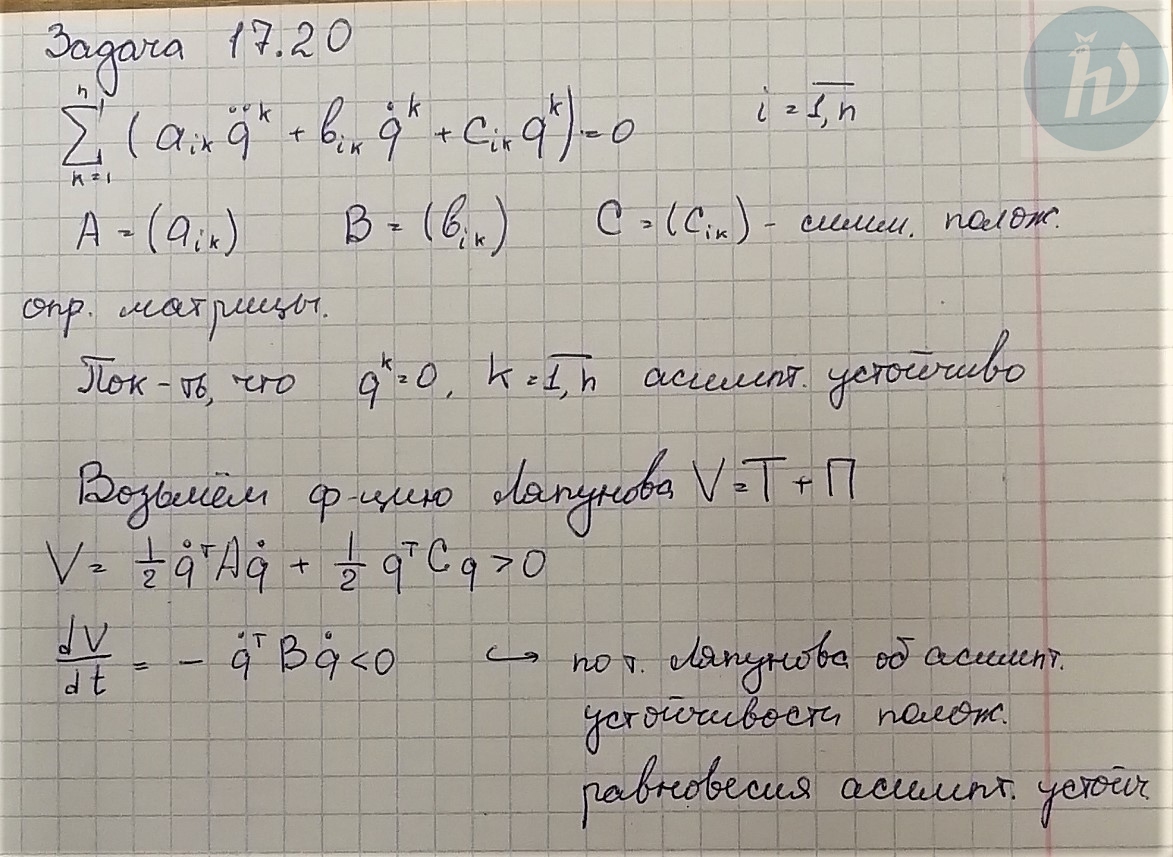 Задача 17.20
n
∑ (aᵢₖ q̈ᵏ + bᵢₖ q̇ᵏ + cᵢₖ qᵏ) = 0    i = 1,n̅
k=1
A = (aᵢₖ)    B = (bᵢₖ)    C = (cᵢₖ) - симм. полож.
опр. матрицы.
Пок-ть, что qᵏ=0, k=1,n̅ асимпт. устойчиво
Возьмём ф-цию Ляпунова V=T+П
V = 1/2 q̇ᵀAq̇ + 1/2 qᵀCq > 0
dV/dt = - q̇ᵀBq̇ < 0 ↪ по т. Ляпунова об асимпт.
устойчивости полож.
равновесия асимпт. устойч.